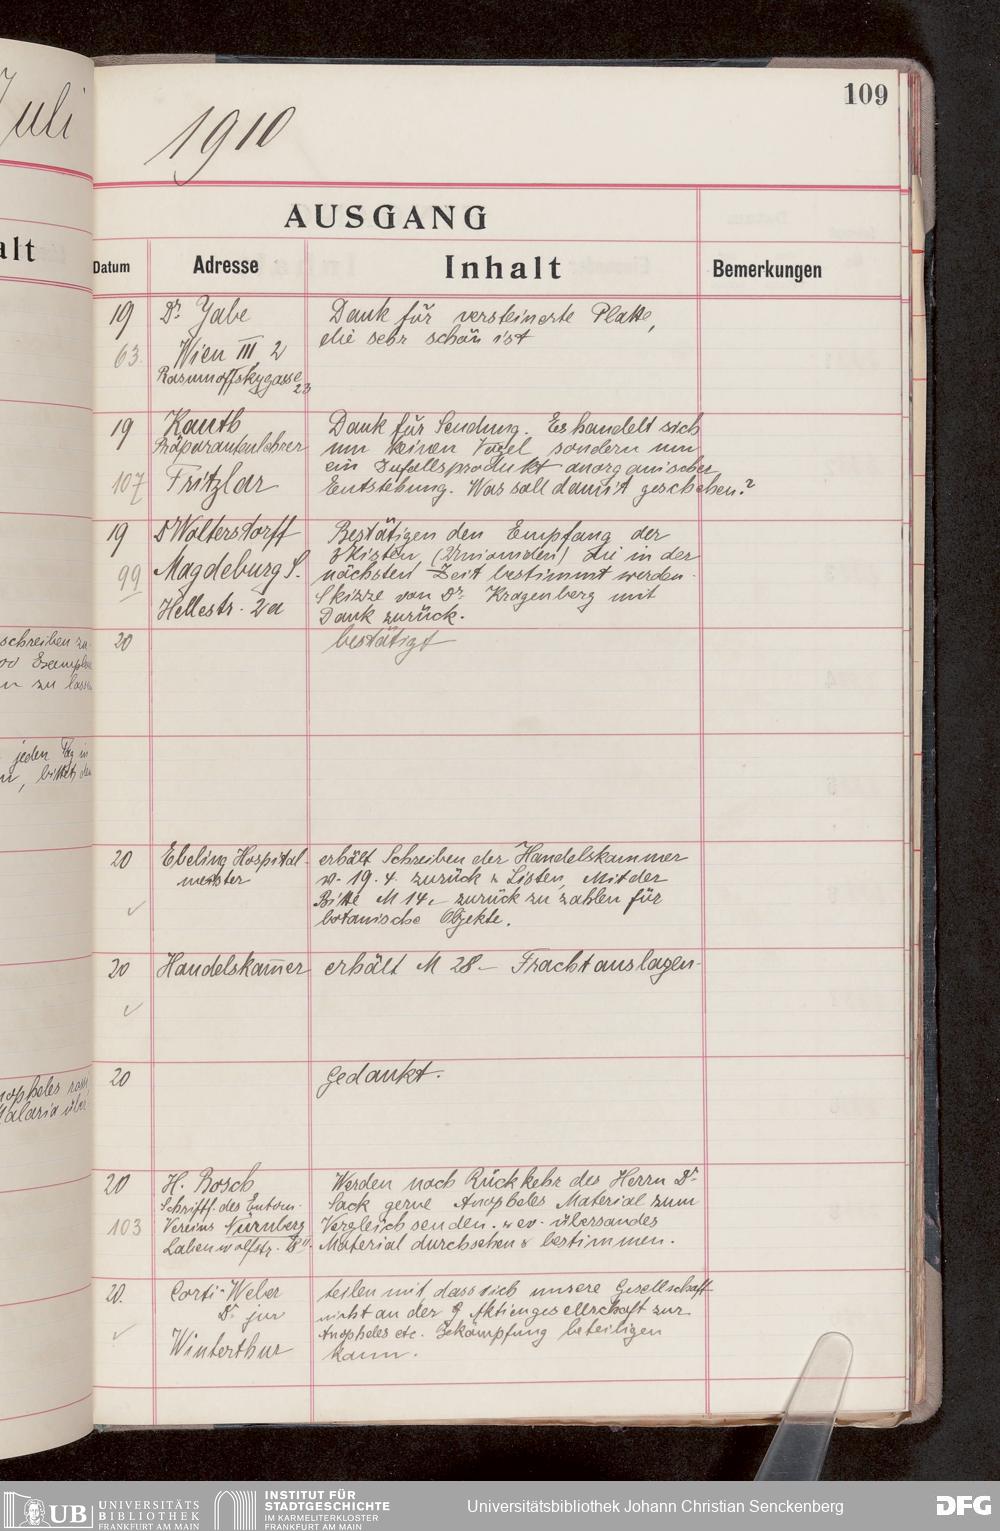 Juli
alt
schreiben zu
en zu lassen
jeden Tag in
bittet den
Anopheles
Malaria über
109
1910
AUSGANG
Datum Adresse Inhalt Bemerkungen
19 Dr. Yabe Dank für versteinerte Platte,
die sehr schön ist
63. Wien III, 2
Rasumoffskygasse
23
19 Kauth Dank für Sendung. Es handelt sich
Präparandenlehrer um keinen Vogel, sondern um
ein Zufallsprodukt anorganischer
107 Fritzlar Entstehung. Was soll damit geschehen?
19 Dr Wolterstorff Bestätigen den Empfang der
Kisten (Unioniden) die in der
99 Magdeburg S. nächsten Zeit bestimmt werden.
Skizze von Dr. Kragenberg mit
Hellestr. 2a Dank zurück.
20 bestätigt
20 Ebeling Hospital- erhält Schreiben der Handelskammer
meister v. 19.4. zurück & Listen, Mit der
Bitte M 14,- zurück zu zahlen für
botanische Objekte.
20 Handelskam̄er erhält M 28 - Frachtauslagen-
20 gedankt.
20 H. Bosch Werden nach Rückkehr des Herrn Dr.
Schriftf. des Entom. Sack gerne Anopheles Material zum
103 Vereins Nürnberg Vergleich senden. & ev. übersandtes
Labenwolfstr. Material durchsehen & bestimmen.
20. Corti-Weber teilen mit, dass sich unsere Gesellschaft
Dr. jur nicht an der Aktiengesellschaft zur
Anopheles etc. Bekämpfung beteiligen
Winterthur kann.
UB UNIVERSITÄTS
BIBLIOTHEK
FRANKFURT AM MAIN
INSTITUT FÜR
STADTGESCHICHTE
IM KARMELITERKLOSTER
FRANKFURT AM MAIN
Universitätsbibliothek Johann Christian Senckenberg
DFG